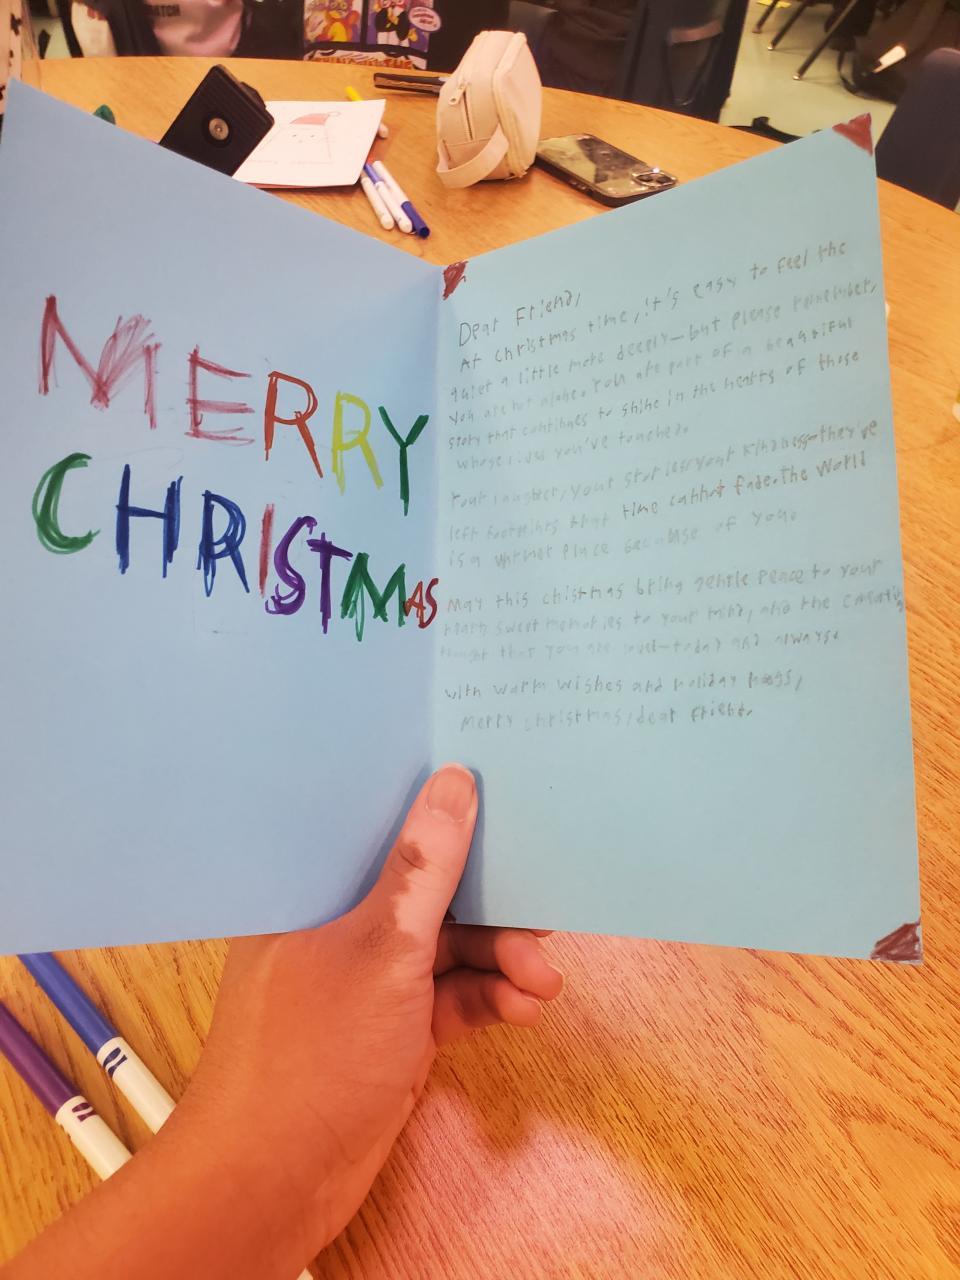 MERRY
CHRISTMAS
Dear Friend,
At christmas time, it's easy to feel the
quiet a little more deeply—but please remember,
you are not alone. You are part of a beautiful
story that continues to shine in the hearts of those
whose lives you've touched.
Your laughter, your stories, your kindness—they've
left footprints that time cannot fade. the world
is a warmer place because of you.
May this chistmas bring gentle peace to your
heart, sweet memories to your mind, and the
thought that you are loved—today and always.
with warm wishes and holiday hugs,
merry christmas, dear friend.